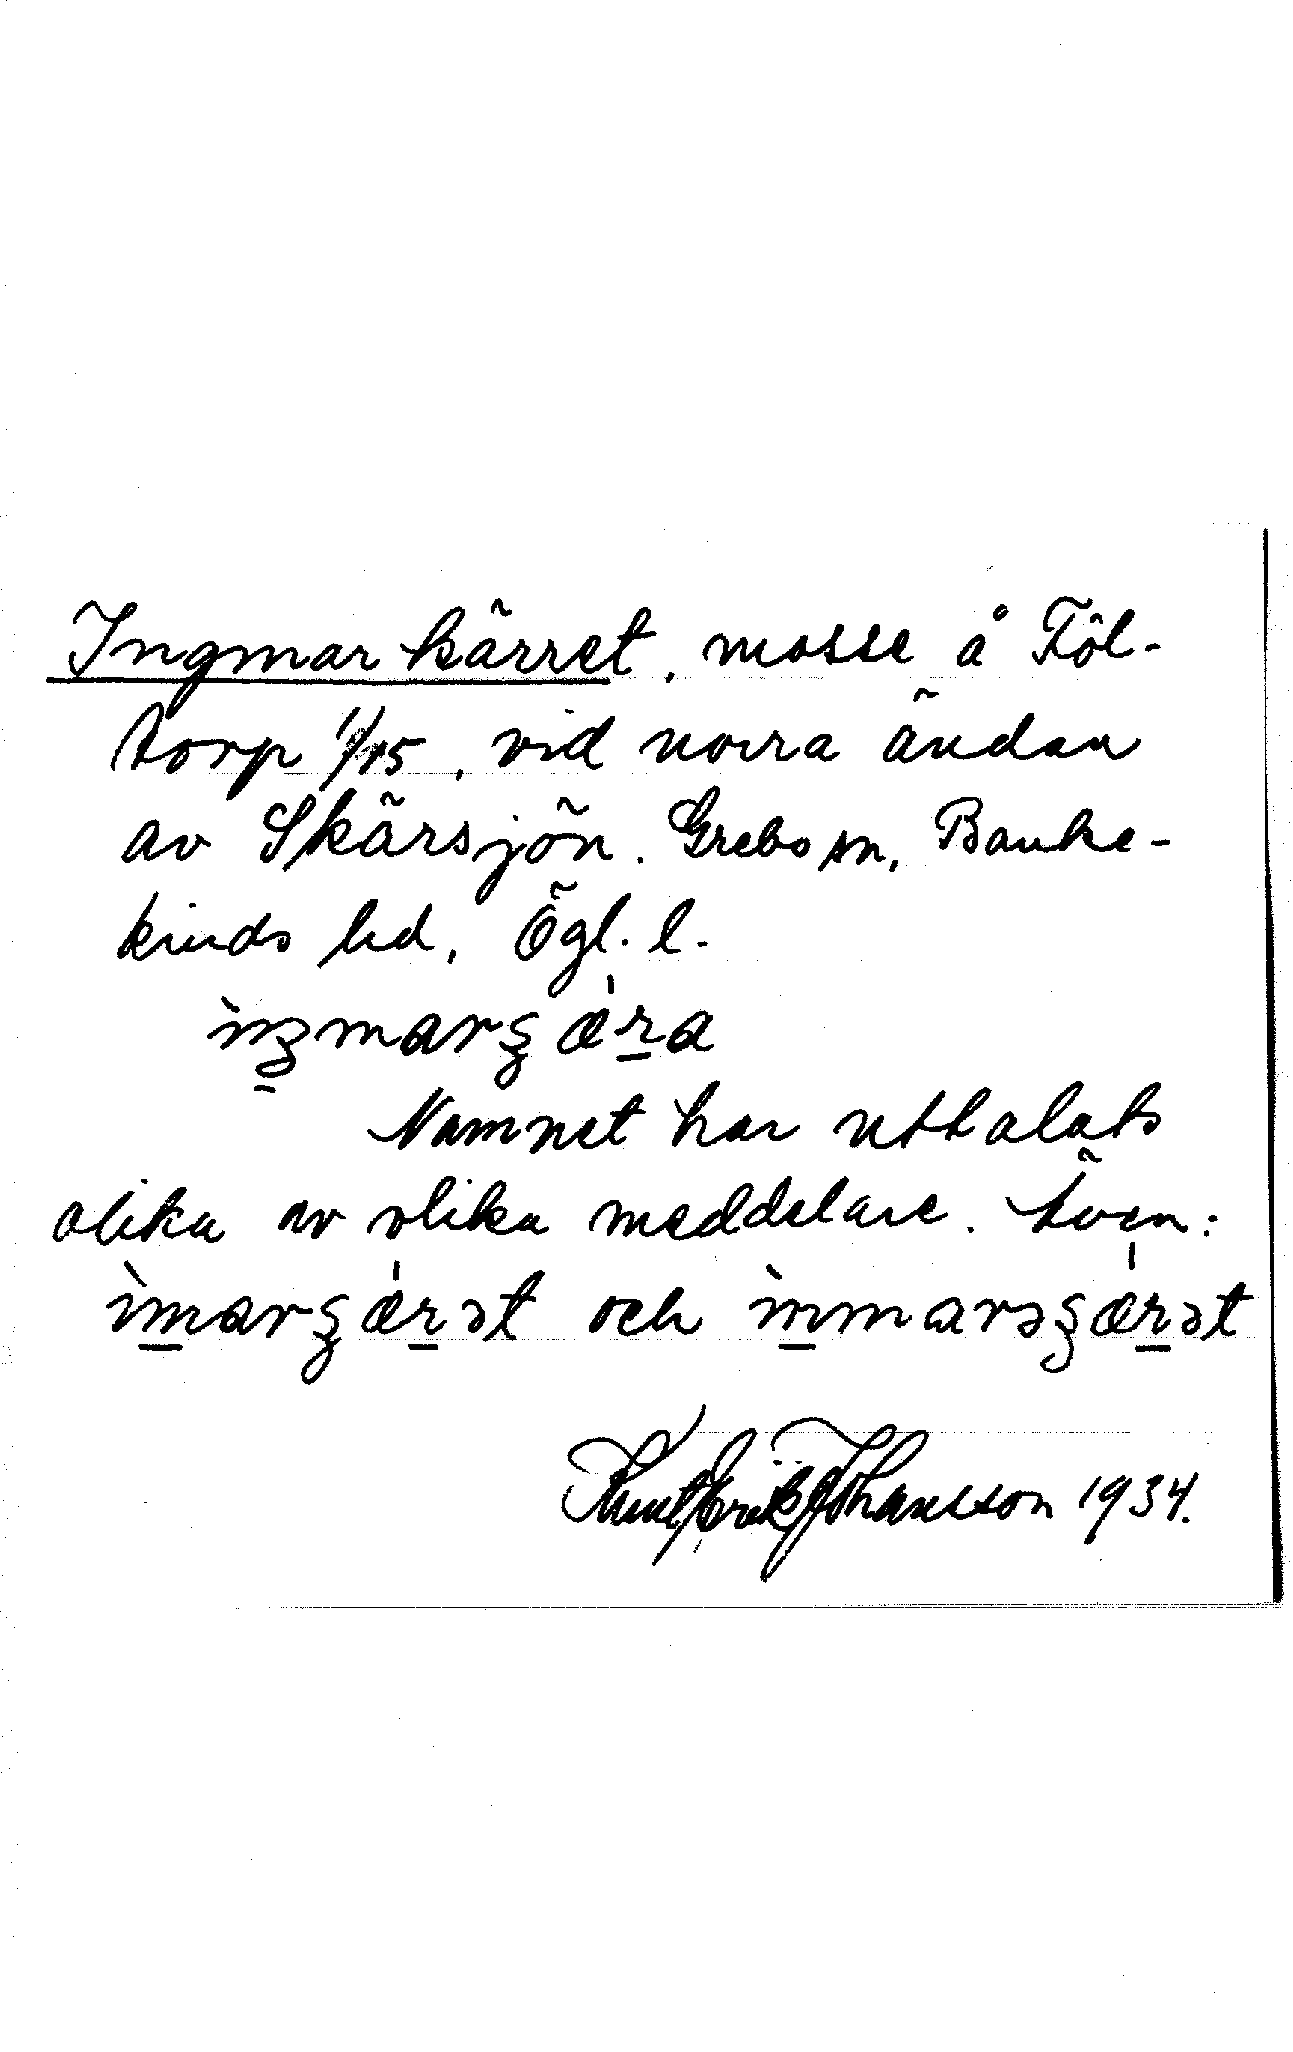 Ingmarkärret, mosse å Föl-
torp 1/15, vid norra ändan
av Skärsjön. Grebo sn, Banke-
kinds hd, Ögl. l.
Namnet har uttalats
olika av olika meddelare. Även:
och
Knut Erik Johansson 1934.